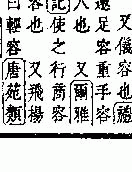 又儀容也禮
遬足容重手容
也 又爾雅
記使之行商容
容也 又飛揚
曰輕容唐苑類